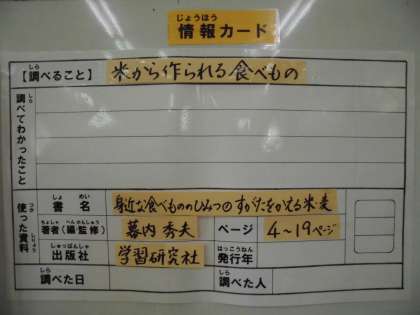 じょうほう
情報カード
しら
【調べること】 米から作られる食べもの
しら
調べてわかったこと
つか しりょう
使った資料
しょ めい
書名 身近な食べもののひみつ① すがたをかえる米・麦
ちょしゃ へんかんしゅう
著者（編監修） 幕内秀夫 ページ 4〜19ページ
しゅっぱんしゃ はっこうねん
出版社 学習研究社 発行年
しら しら
調べた日 調べた人